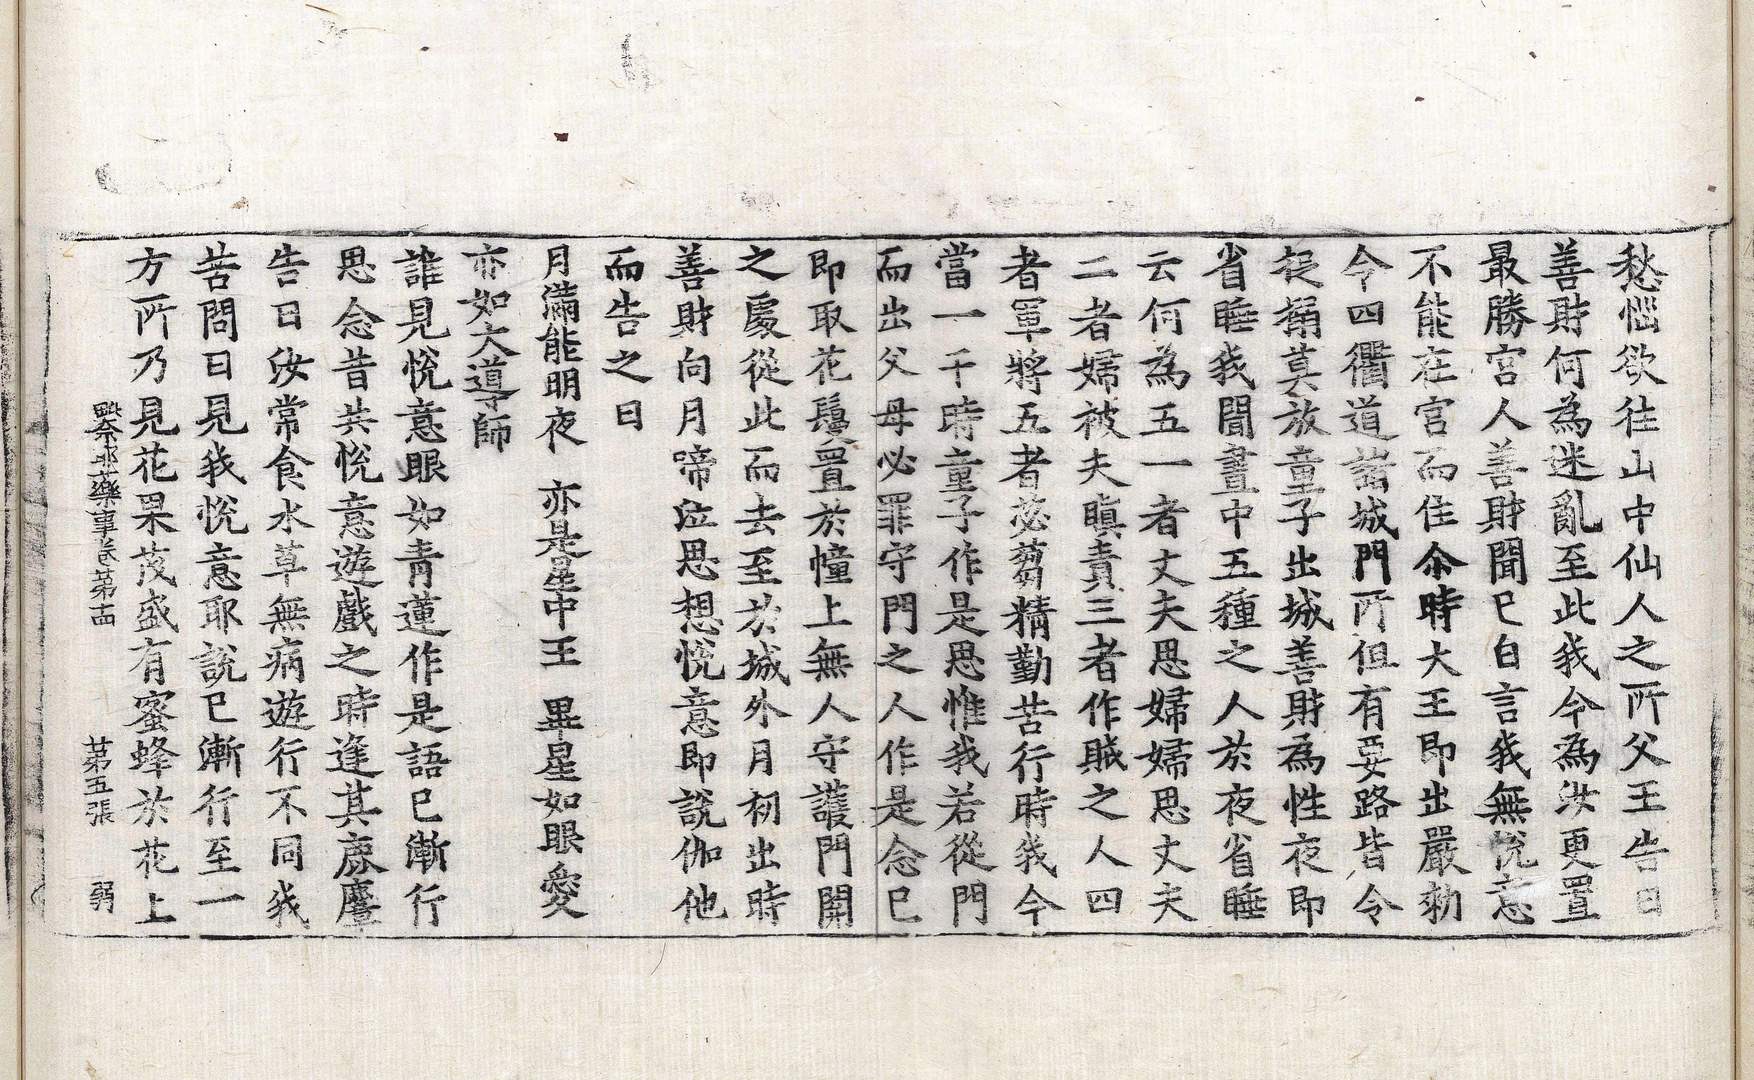 愁惱欲往山中仙人之所父王告曰
善財何為迷亂至此我今為汝更置
最勝宮人善財聞已白言我無悅意
不能在宮而住尒時大王即出嚴勑
令四衢道諸城門所但有要路皆令
捉搦莫放童子出城善財為性夜即
省睡我聞晝中五種之人於夜省睡
云何為五一者丈夫思婦婦思丈夫
二者婦被夫瞋責三者作賊之人四
者軍將五者苾蒭精勤苦行時我今
當一千時童子作是思惟我若從門
而出父母必罪守門之人作是念已
即取花鬘置於幢上無人守護門開
之處從此而去至於城外月初出時
善財向月啼泣思想悅意即說伽他
而告之曰
月滿能明夜　亦是星中王　畢星如眼愛
亦如大導師
誰見悅意眼如青蓮作是語已漸行
思念昔共悅意遊戲之時逢其麀麞
告曰汝常食水草無病遊行不同我
苦問曰見我悅意耶說已漸行至一
方所乃見花果茂盛有蜜蜂於花上
藥事卷第十四　第五張　弱